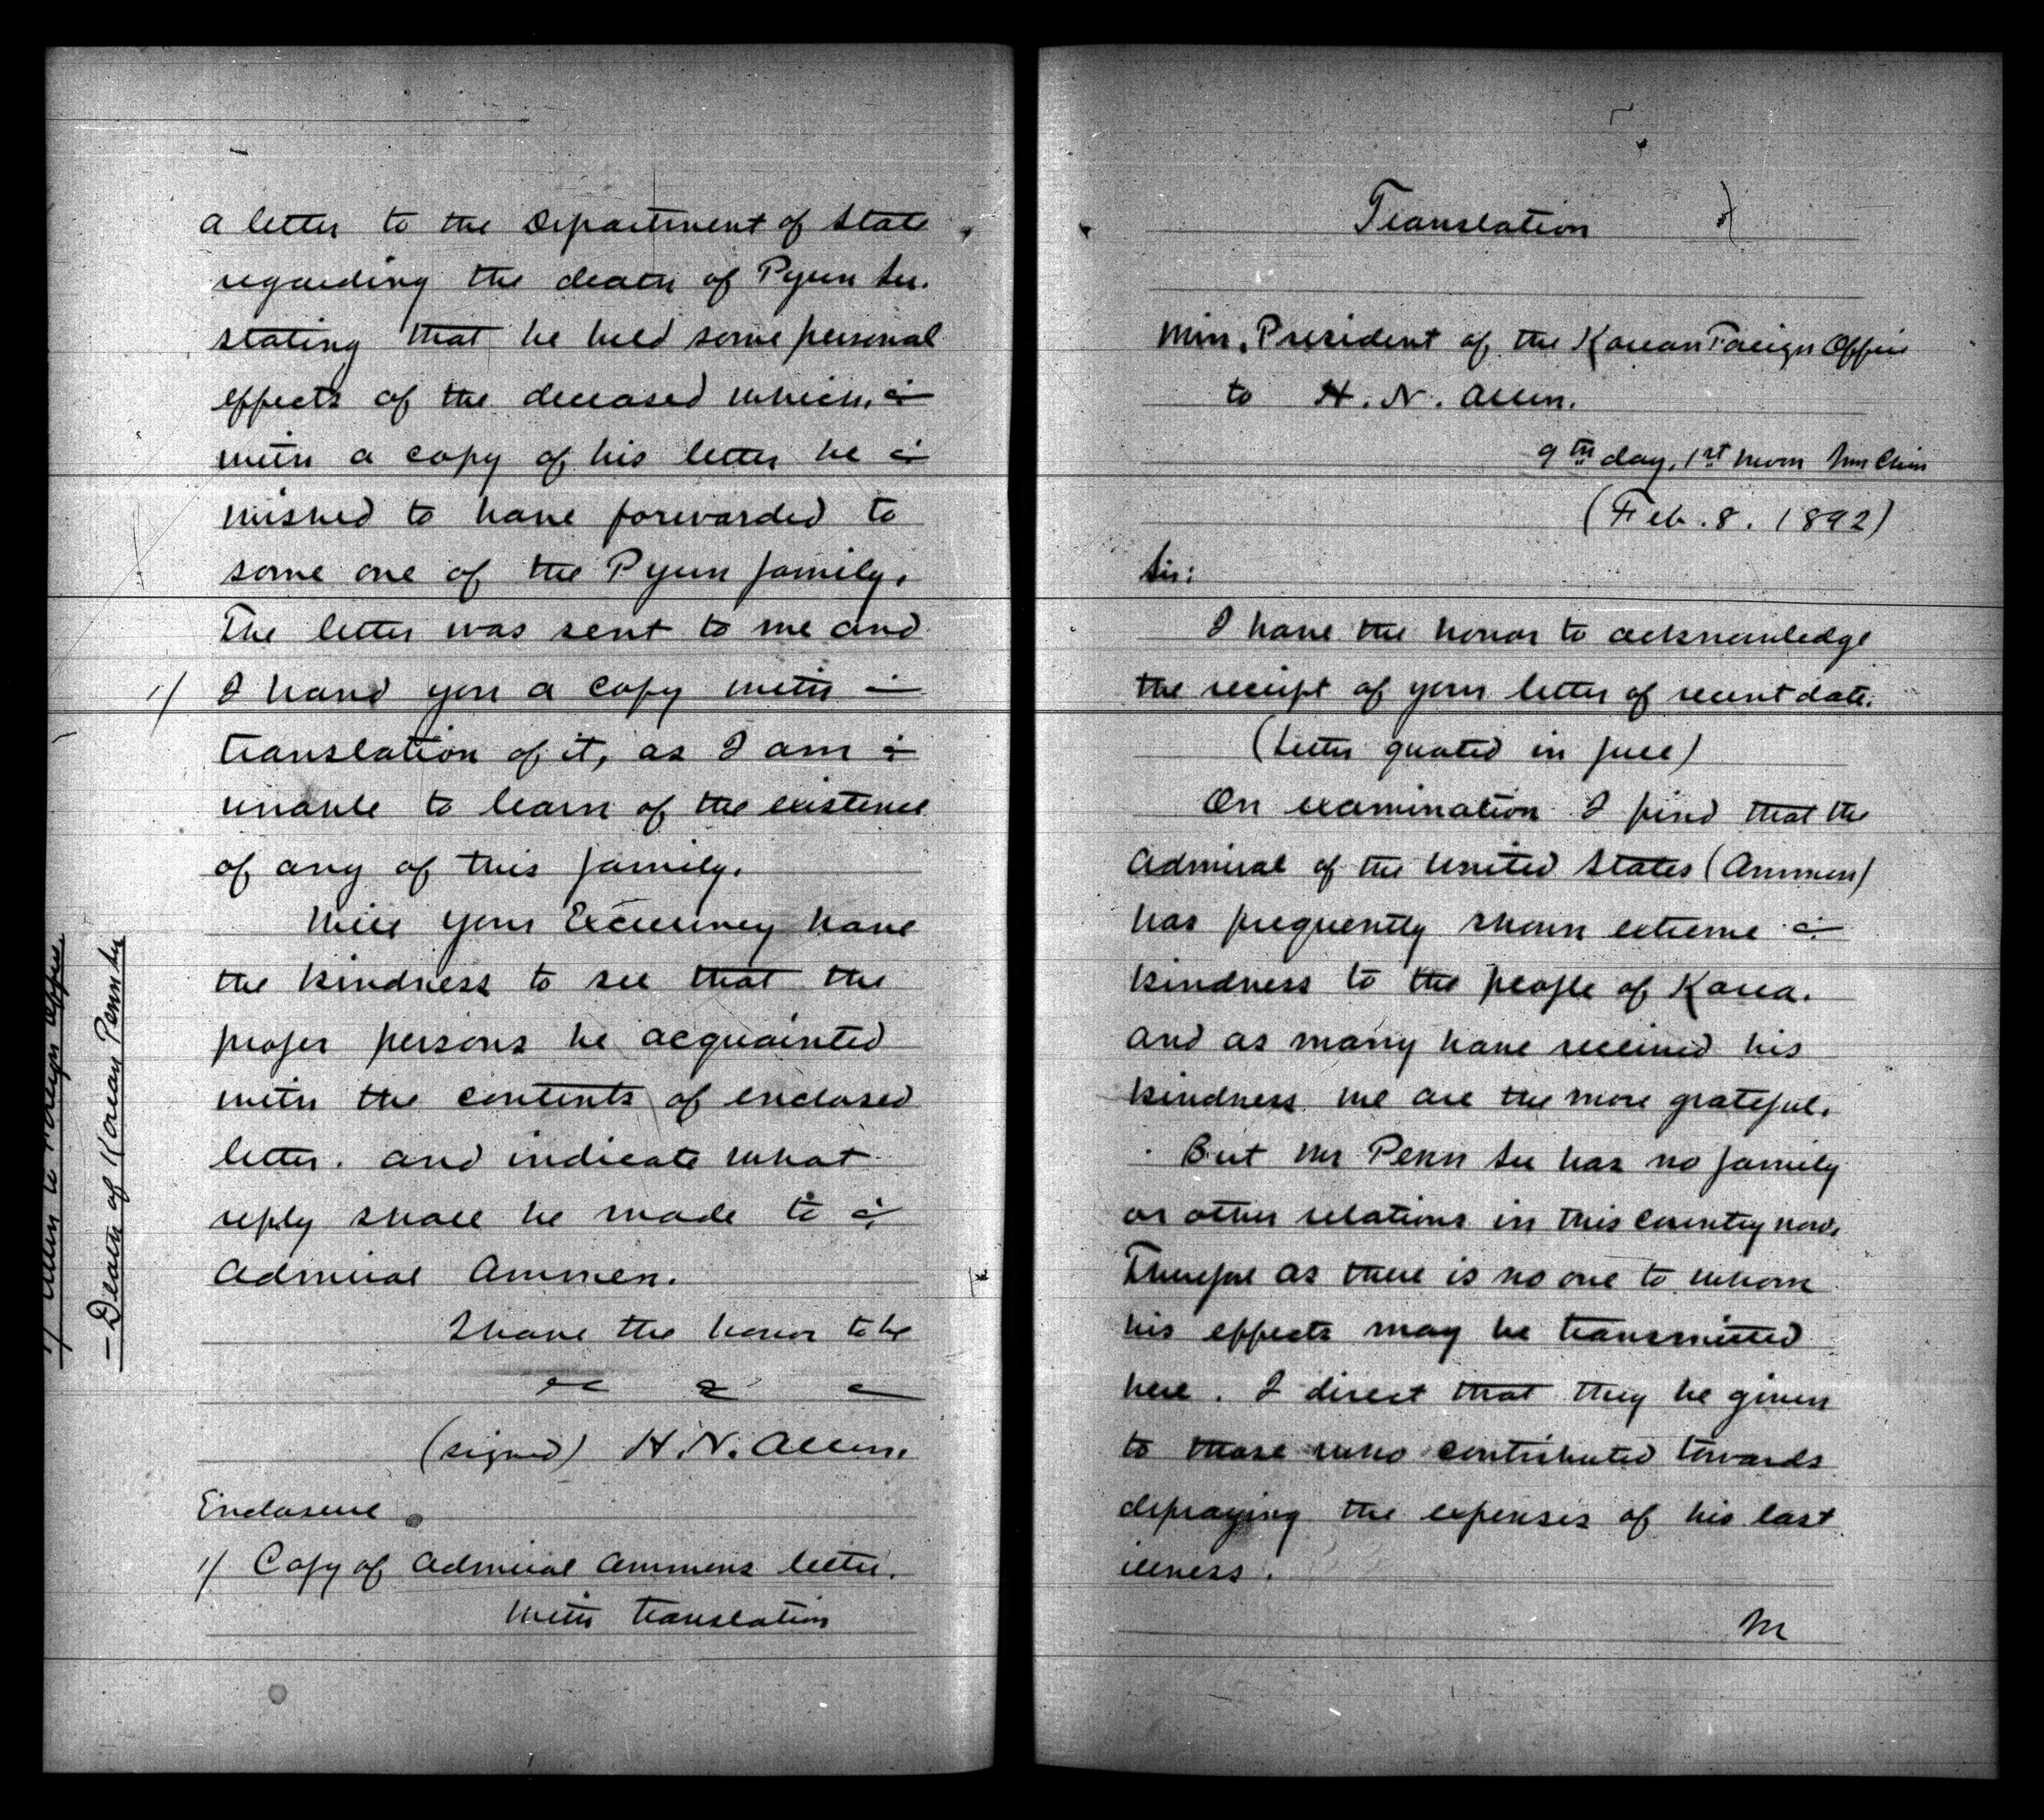 a letter to the Department of State
regarding the death of Pyun Su.
stating that he held some personal
effects of the deceased which,
with a copy of his letter he
wished to have forwarded to
some one of the Pyun family.
The letter was sent to me and
1/ I hand you a copy with
translation of it, as I am
unable to learn of the existence
of any of this family.
Will your Excellency have
the kindness to see that the
proper persons be acquainted
with the contents of enclosed
letter. and indicate what
reply shall be made to
Admiral Ammen.
I have the honor to be
(signed) H. N. Allen.
Enclosure.
1/ Copy of Admiral Ammens letter.
with translation
1/ Allen to Foreign Office
— Death of Korean Penn Su
Translation
Min, President of the Korean Foreign Office
to H. N. Allen.
9th day, 1st Moon
(Feb. 8. 1892)
Sir:
I have the honor to acknowledge
the receipt of your letter of recent date.
(Letter quoted in full)
On examination I find that the
Admiral of the United States (Ammen)
has frequently shown extreme
kindness to the people of Korea.
and as many have received his
kindness we are the more grateful.
But Mr Penn Su has no family
or other relations in this country now.
Therefore as there is no one to whom
his effects may be transmitted
here. I direct that they be given
to those who contributed towards
defraying the expenses of his last
illness.
M